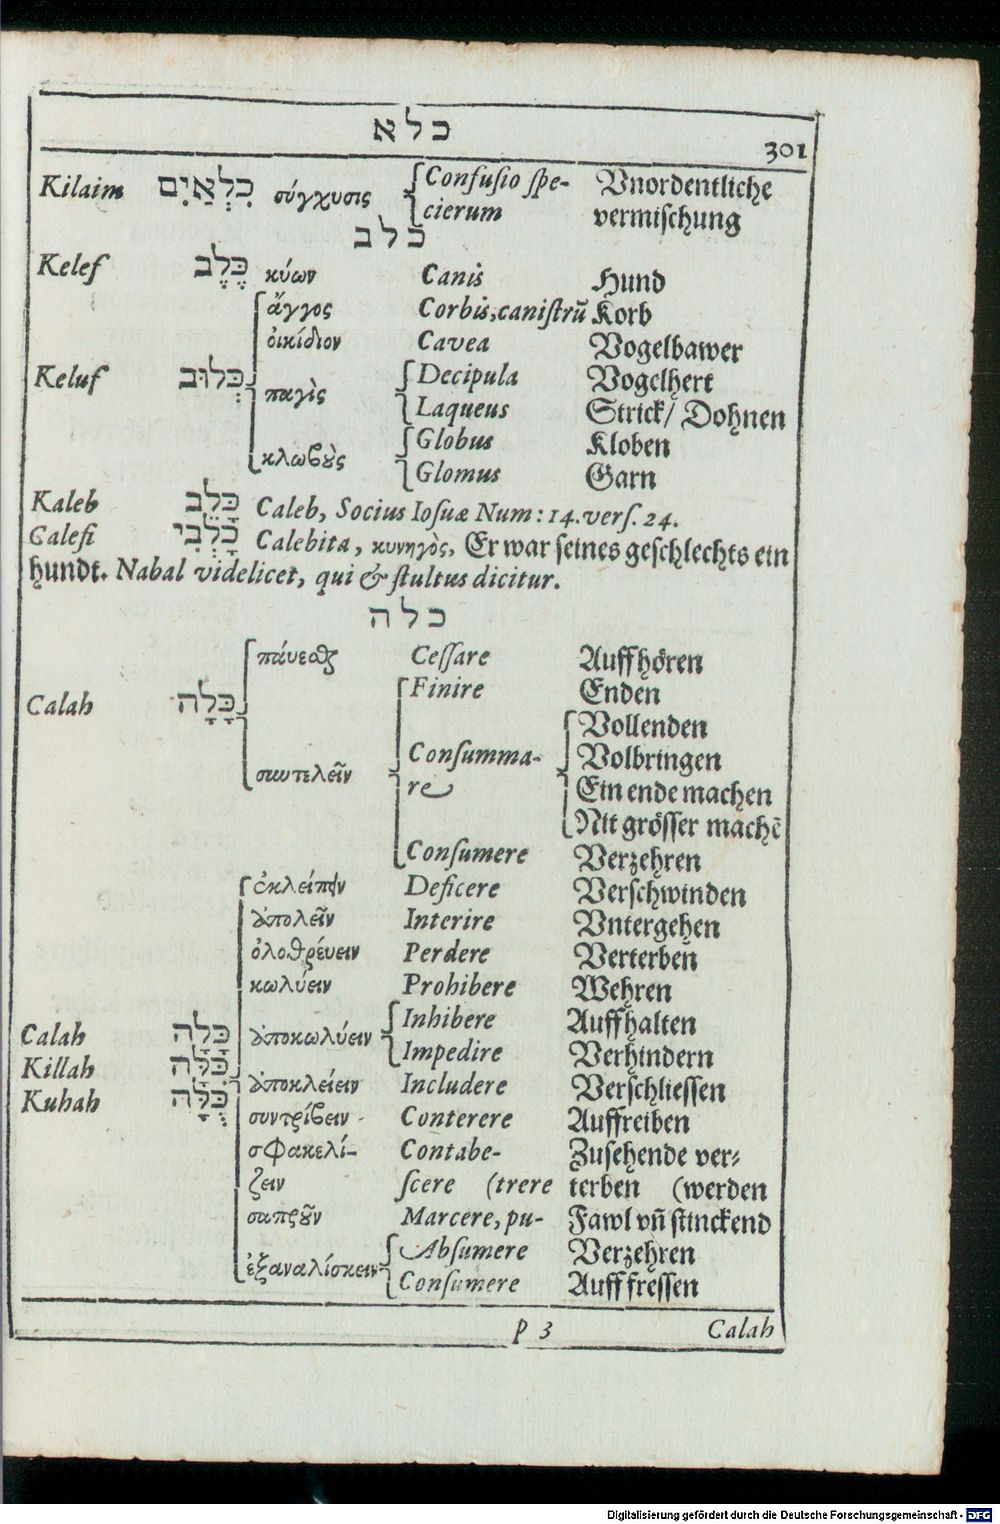 כלא
301
Kilaim כִּלְאַיִם σύγχυσις Confusio spe- Vnordentliche
cierum vermischung
כלב
Kelef כֶּלֶב κύων Canis Hund
ἄγγος Corbis, canistrũ Korb
οἰκίδιον Cavea Vogelbawer
Keluf כְּלוּב παγὶς Decipula Vogelhert
Laqueus Strick/ Dohnen
κλωβοὺς Globus Kloben
Glomus Garn
Kaleb כָּלֵב Caleb, Socius Iosuæ Num: 14. vers. 24.
Calefi כָּלְבִּי Calebita, κυνηγὸς, Er war seines geschlechts ein
hundt. Nabal videlicet, qui & stultus dicitur.
כלה
παύεσθαι Cessare Auffhören
Calah כָּלָה Finire Enden
Vollenden
συντελεῖν Consumma- Volbringen
re Ein ende machen
Nit grösser machẽ
Consumere Verzehren
ἐκλείπειν Deficere Verschwinden
ἀπολεῖν Interire Vntergehen
ὀλοθρέυειν Perdere Verterben
κωλύειν Prohibere Wehren
Calah כָּלָה ἀποκωλύειν Inhibere Auffhalten
Killah כִּלָּה Impedire Verhindern
Kuhah כֻּלָּה ἀποκλείειν Includere Verschliessen
συντρίβειν Conterere Auffreiben
σφακελί- Contabe- Zusehende ver-
ζειν scere (trere terben (werden
σαπροῦν Marcere, pu- Fawl vñ stinckend
ἐξαναλίσκειν Absumere Verzehren
Consumere Auff fressen
p 3 Calah
Digitalisierung gefördert durch die Deutsche Forschungsgemeinschaft - DFG